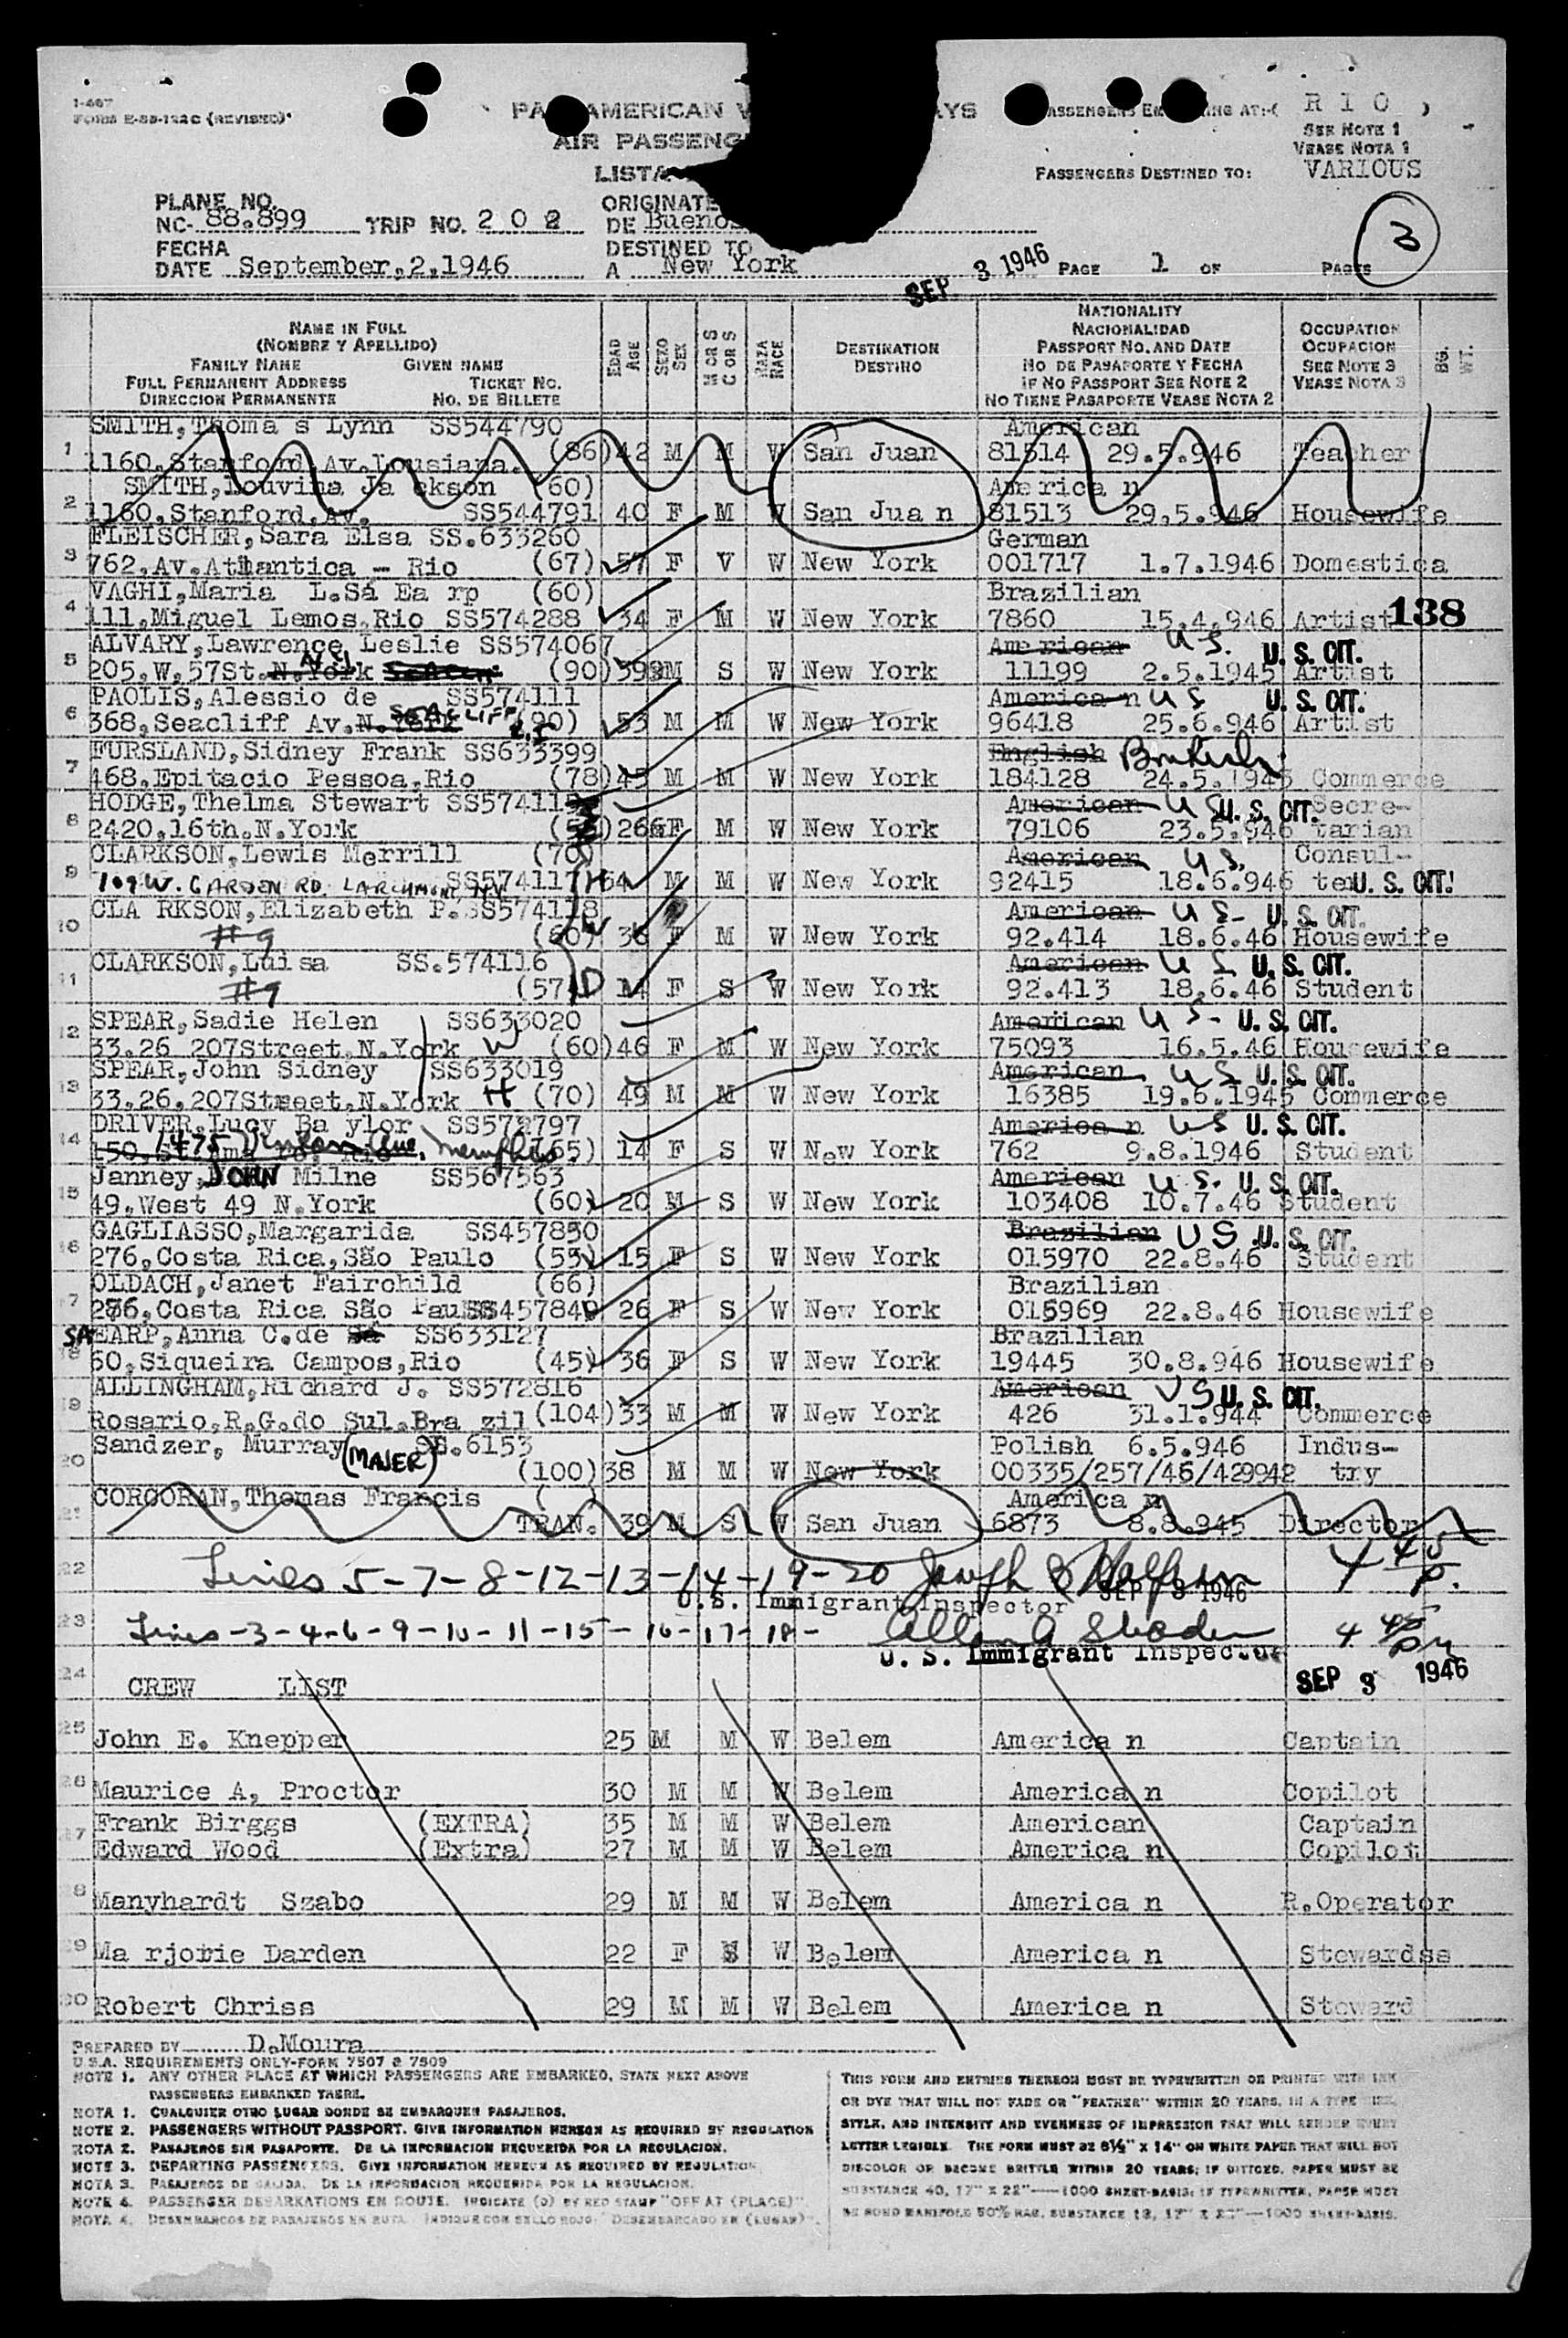 1-467
FORM E-SS-122C (REVISED)
PAN AMERICAN W AYS
AIR PASSENG
LISTA
PASSENGERS EMBARKING AT:-( R I O ,
SEE NOTE 1
VEASE NOTA 1
PASSENGERS DESTINED TO: VARIOUS
PLANE NO.
NC- 88.899 TRIP NO. 2 0 2
ORIGINATE
DE Buenos
FECHA
DATE September,2,1946
DESTINED TO
A New York
SEP 3 1946
PAGE 1 OF PAGES
3
NAME IN FULL
(NOMBRE Y APELLIDO)
FAMILY NAME GIVEN NAME
FULL PERMANENT ADDRESS TICKET NO.
DIRECCION PERMANENTE NO. DE BILLETE
EDAD AGE
SEXO SEX
M OR S C OR S
RAZA RACE
DESTINATION
DESTINO
NATIONALITY
NACIONALIDAD
PASSPORT NO. AND DATE
NO DE PASAPORTE Y FECHA
IF NO PASSPORT SEE NOTE 2
NO TIENE PASAPORTE VEASE NOTA 2
OCCUPATION
OCUPACION
SEE NOTE 3
VEASE NOTA 3
BG. WT.
SMITH,Thoma s Lynn SS544790 American
1 1160.Stanford.Av.Lousiana. (86) 42 M M W San Juan 81514 29.5.946 Teacher
SMITH,Louvina Ja ckson (60) America n
2 1160.Stanford.Av. SS544791 40 F M W San Jua n 81513 29.5.946 Housewife
FLEISCHER,Sara Elsa SS.633260 German
3 762.Av.Atlantica - Rio (67) 57 F V W New York 001717 1.7.1946 Domestica
VAGHI,Maria L.Sá Ea rp (60) Brazilian
4 111,Miguel Lemos,Rio SS574288 34 F M W New York 7860 15.4.946 Artist 138
ALVARY,Lawrence Leslie SS574067 American U.S. U. S. CIT.
5 205.W.57St.N.York (90) 39 M S W New York 11199 2.5.1945 Artist
PAOLIS,Alessio de SS574111 America n U S U. S. CIT.
6 368,Seacliff Av.N.York SEACLIFF L.I (90) 53 M M W New York 96418 25.6.946 Artist
FURSLAND,Sidney Frank SS633399 English British
7 468,Epitacio Pessoa,Rio (78) 45 M M W New York 184128 24.5.1945 Commerce
HODGE,Thelma Stewart SS57411 American U S U. S. CIT. Secre-
8 2420.16th.N.York 26 F M W New York 79106 23.5.946 tarian
CLARKSON,Lewis Merrill (70) American U.S. Consul-
9 109 W. GARDEN RD. LARCHMONT, N.Y. SS574117 H 54 M M W New York 92415 18.6.946 U. S. CIT.
CLA RKSON,Elizabeth P. SS574118 American U S- U. S. CIT.
10 #9 (60) W 36 F M W New York 92.414 18.6.46 Housewife
CLARKSON,Luisa SS.574116 American U S. U. S. CIT.
11 #9 (57) D 14 F S W New York 92.413 18.6.46 Student
SPEAR,Sadie Helen SS633020 American U S- U. S. CIT.
12 33.26 207Street.N.York W (60) 46 F M W New York 75093 16.5.46 Housewife
SPEAR,John Sidney SS633019 American U S U. S. CIT.
13 33.26.207Street.N.York H (70) 49 M M W New York 16385 19.6.1945 Commerce
DRIVER,Lucy Ba ylor SS572797 America n US U. S. CIT.
14 1475 Vinton Ave. Memphis (65) 14 F S W New York 762 9.8.1946 Student
Janney,JOHN Milne SS567563 American U.S. U. S. CIT.
15 49.West 49 N.York (60) 20 M S W New York 103408 10.7.46 Student
GAGLIASSO,Margarida SS457850 Brazilian US U. S. CIT.
16 276,Costa Rica,São Paulo (55) 15 F S W New York 015970 22.8.46 Student
OLDACH,Janet Fairchild (66) Brazilian
17 276,Costa Rica São Paulo SS457849 26 F S W New York 015969 22.8.46 Housewife
SA EARP,Anna C.de Sá SS633127 Brazilian
18 60,Siqueira Campos,Rio (45) 36 F S W New York 19445 30.8.946 Housewife
ALLINGHAM,Richard J. SS572816 American US U. S. CIT.
19 Rosario,R.G.do Sul.Bra zil (104) 33 M M W New York 426 31.1.944 Commerce
Sandzer, Murray (MAJER) SS.6153 Polish 6.5.946 Indus-
20 (100) 38 M M W New York 00335/257/46/429942 try
CORCORAN,Thomas Francis ( ) America n
21 TRAN. 39 M S W San Juan 6873 8.8.945 Director
22 Lines 5-7-8-12-13-14-19-20 4 45 P.
U.S. Immigrant Inspector SEP 3 1946
23 Lines-3-4-6-9-10-11-15-16-17-18- 4 45 Pm
U. S. Immigrant Inspector
24 CREW LIST SEP 3 1946
25 John E. Knepper 25 M M W Belem America n Captain
26 Maurice A, Proctor 30 M M W Belem America n Copilot
Frank Birggs (EXTRA) 35 M M W Belem American Captain
27 Edward Wood (Extra) 27 M M W Belem America n Copilot
28 Manyhardt Szabo 29 M M W Belem America n R.Operator
29 Ma rjorie Darden 22 F S W Belem America n Stewardss
30 Robert Chriss 29 M M W Belem America n Steward
PREPARED BY D.Moura
U.S.A. REQUIREMENTS ONLY-FORM 7507 & 7509
NOTE 1. ANY OTHER PLACE AT WHICH PASSENGERS ARE EMBARKED, STATE NEXT ABOVE
PASSENGERS EMBARKED THERE.
NOTA 1. CUALQUIER OTRO LUGAR DONDE SE EMBARQUEN PASAJEROS.
NOTE 2. PASSENGERS WITHOUT PASSPORT. GIVE INFORMATION HEREON AS REQUIRED BY REGULATION
NOTA 2. PASAJEROS SIN PASAPORTE. DE LA INFORMACION REQUERIDA POR LA REGULACION.
NOTE 3. DEPARTING PASSENGERS. GIVE INFORMATION HEREON AS REQUIRED BY REGULATION
NOTA 3. PASAJEROS DE SALIDA. DE LA INFORMACION REQUERIDA POR LA REGULACION.
NOTE 4. PASSENGER DEBARKATIONS EN ROUTE. INDICATE (D) BY RED STAMP "OFF AT (PLACE)".
NOTA 4. DESEMBARCOS DE PASAJEROS EN RUTA. INDIQUE CON SELLO ROJO "DESEMBARCADO EN (LUGAR)".
THIS FORM AND ENTRIES THEREON MUST BE TYPEWRITTEN OR PRINTED WITH INK
OR DYE THAT WILL NOT FADE OR "FEATHER" WITHIN 20 YEARS, IN A TYPE SIZE,
STYLE, AND INTENSITY AND EVENNESS OF IMPRESSION THAT WILL RENDER EVERY
LETTER LEGIBLE. THE FORM MUST BE 8½" X 14" ON WHITE PAPER THAT WILL NOT
DISCOLOR OR BECOME BRITTLE WITHIN 20 YEARS; IF DITTOED, PAPER MUST BE
SUBSTANCE 40, 17" X 22"—1000 SHEET-BASIS; IF TYPEWRITTEN, PAPER MUST
BE BOND MANIFOLD 50% RAG, SUBSTANCE 18, 17" X 22"—1000 SHEET-BASIS.